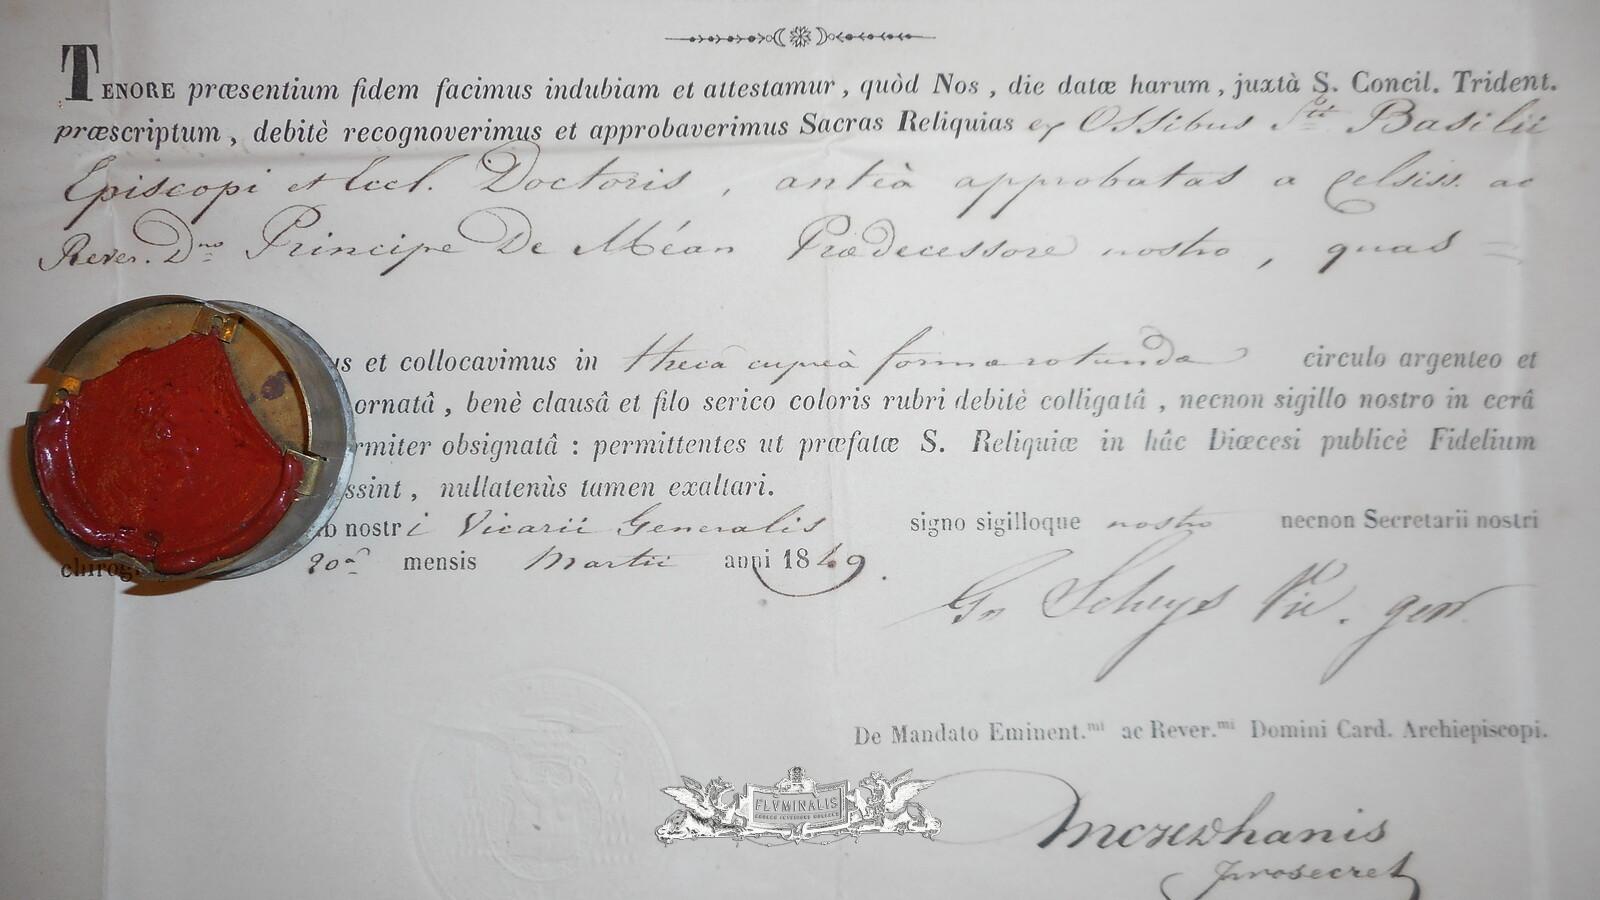 TENORE præsentium fidem facimus indubiam et attestamur, quòd Nos, die datæ harum, juxtà S. Concil. Trident.
præscriptum, debitè recognoverimus et approbaverimus Sacras Reliquias ex Ossibus Sti Basilii
Episcopi et Eccl. Doctoris, anteà approbatas a Celsiss. ac
Rever. Dno Principe De Méan Prædecessore nostro, quas =
us et collocavimus in thecâ cupreâ formæ rotundæ circulo argenteo et
ornatâ, benè clausâ et filo serico coloris rubri debitè colligatâ, necnon sigillo nostro in cerâ
rmiter obsignatâ : permittentes ut præfatæ S. Reliquiæ in hâc Diœcesi publicè Fidelium
ssint, nullatenùs tamen exaltari.
b nostri Vicarii Generalis signo sigilloque nostro necnon Secretarii nostri
chirog 20a mensis Martii anni 1849.
Vic. gen.
De Mandato Eminent.mi ac Rever.mi Domini Card. Archiepiscopi.
FLVMINALIS
prosecret